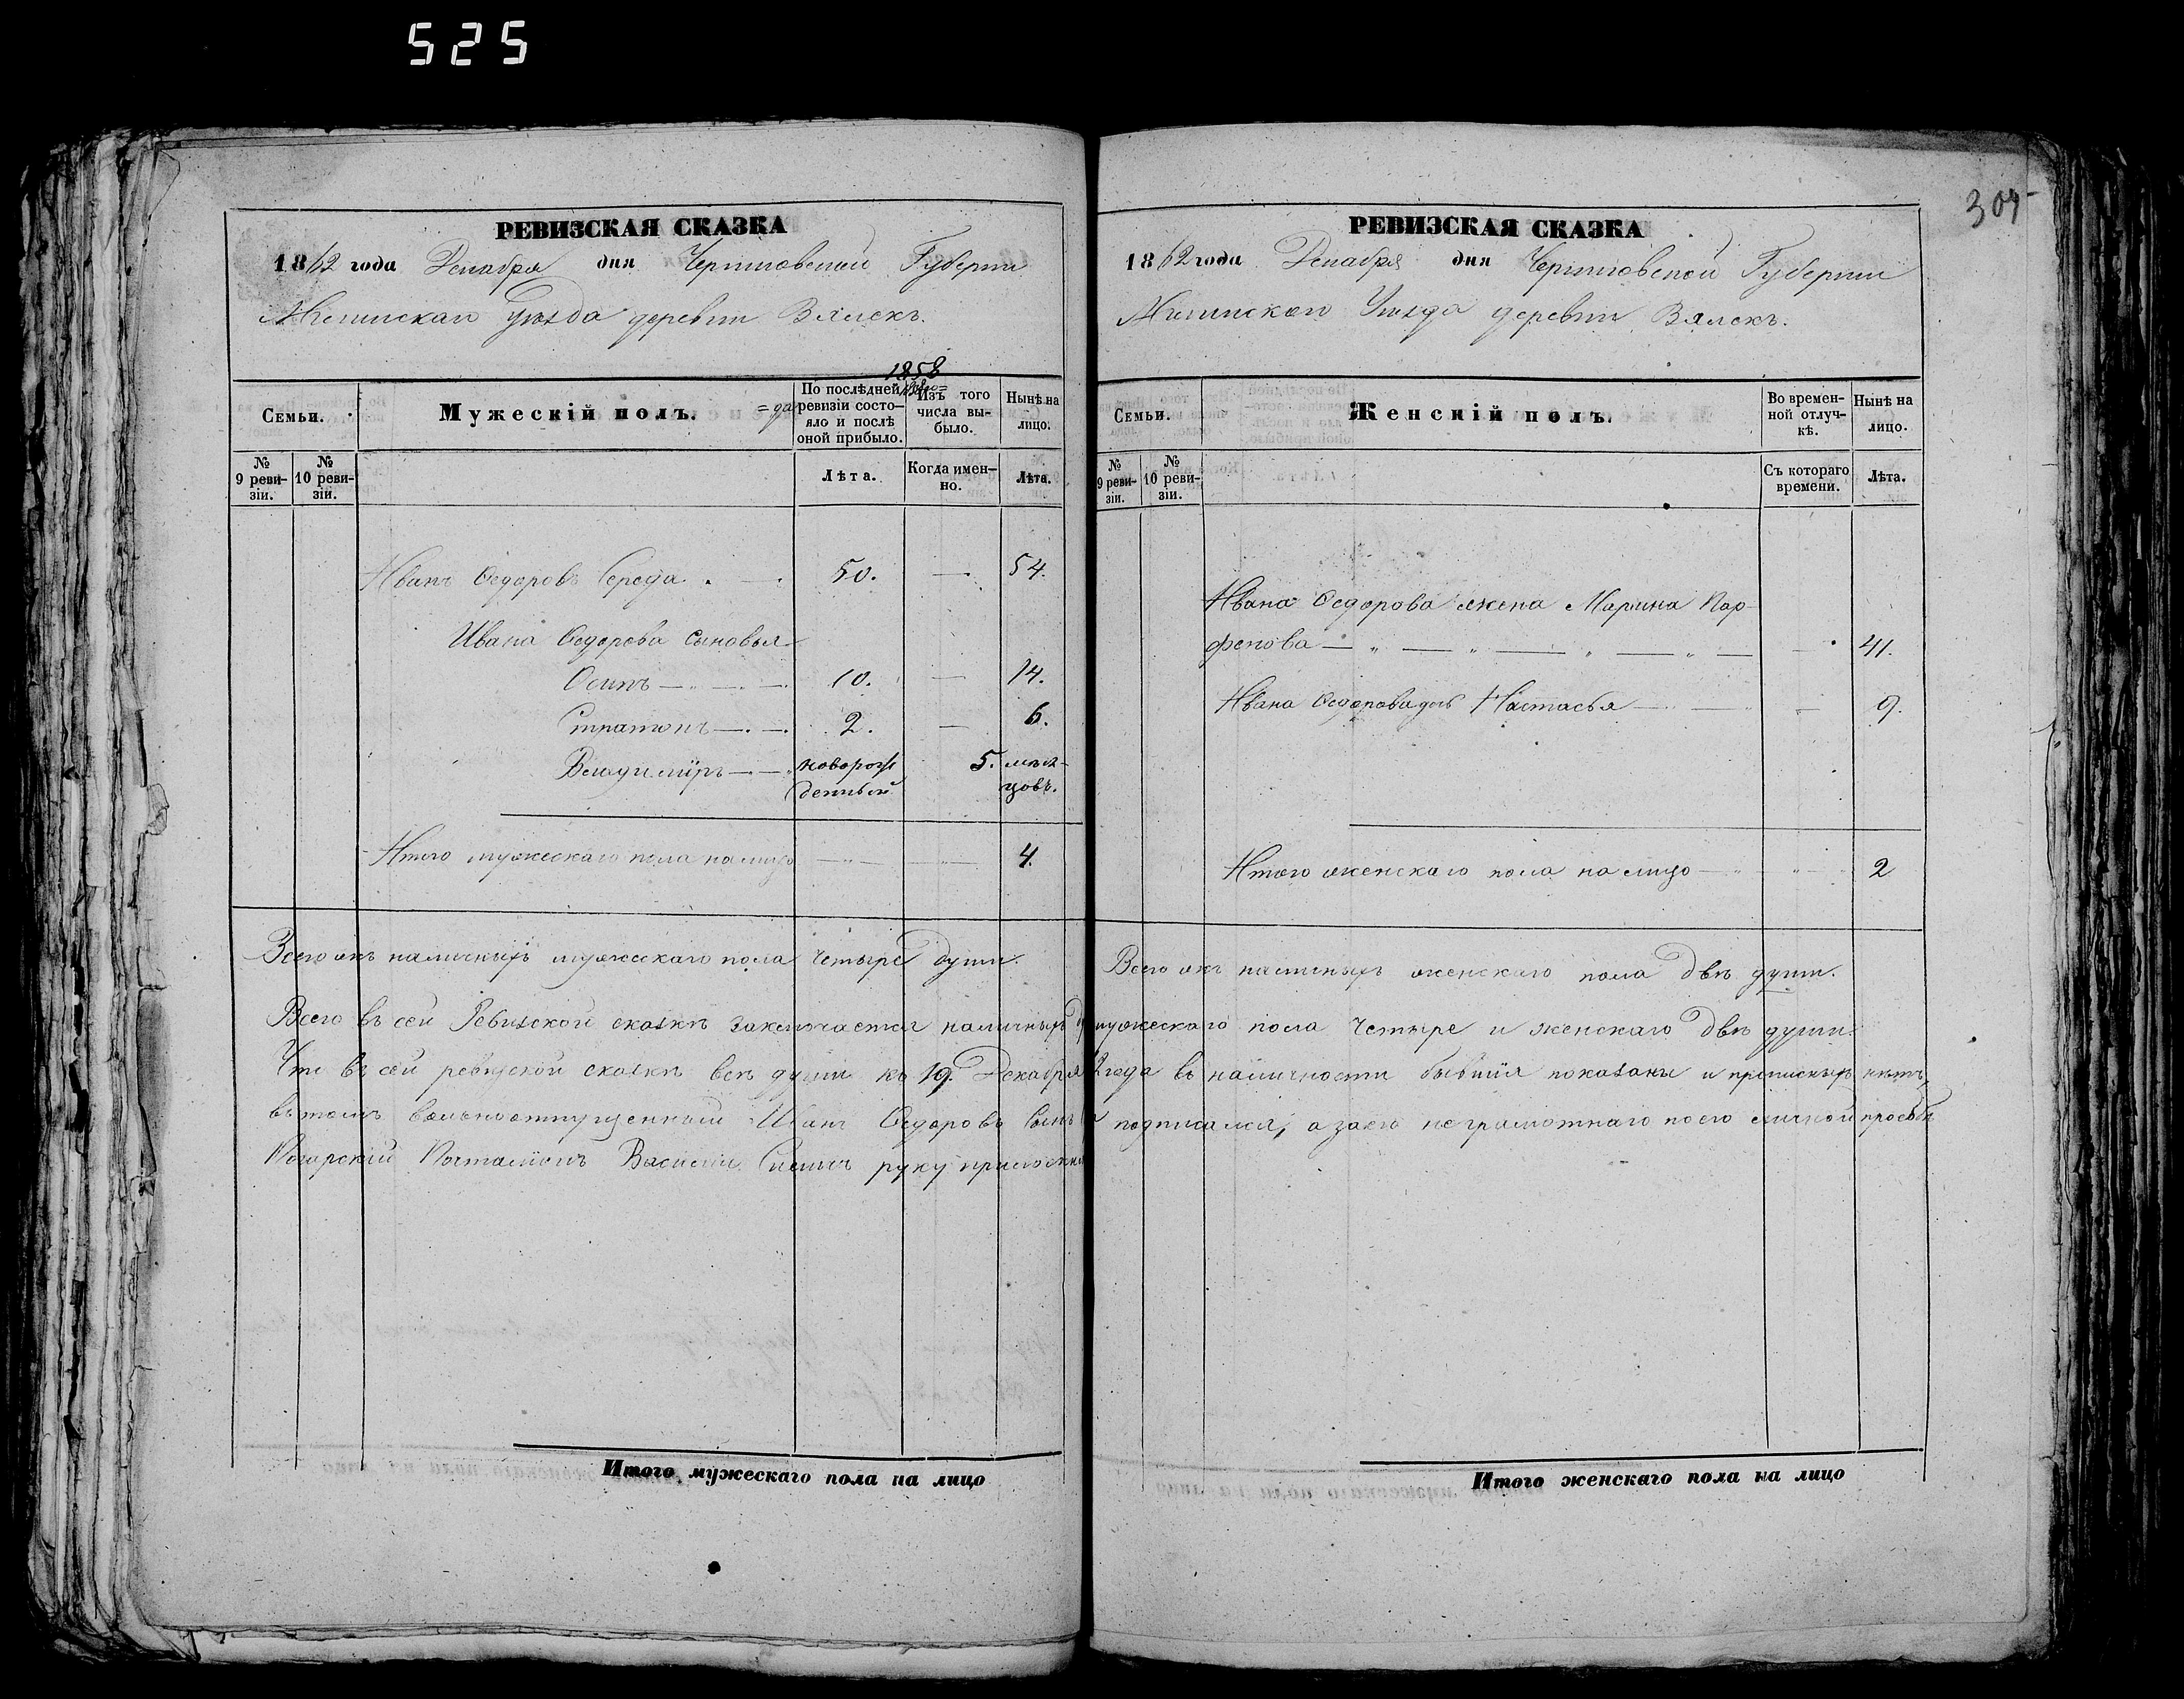 525
305
РЕВИЗСКАЯ СКАЗКА
1862 года Декабря дня Черниговской Губернии
Мглинскаго Уѣзда деревни Вялекъ.
Семьи.
Мужескій полъ.
1858 =го=да
По послѣдней ревизіи состояло и послѣ оной прибыло.
Изъ того числа выбыло.
Нынѣ на лицо.
№ 9 ревизіи.
№ 10 ревизіи.
Лѣта.
Когда именно.
Лѣта.
Иванъ Ѳедоровъ Середа. — 50. — 54.
Ивана Ѳедорова сыновья
Осипъ — 10. — 14.
Стратонъ — 2. — 6.
Владиміръ — новорож 5. мѣся-
денный цовъ.
Итого мужескаго пола на лицо — 4.
Всего же наличныхъ мужескаго пола четыре души.
РЕВИЗСКАЯ СКАЗКА
1862 года Декабря дня Черниговской Губернии
Мглинскаго Уѣзда деревни Вялекъ.
Семьи.
Женскій полъ.
Во временной отлучкѣ.
Нынѣ на лицо.
№ 9 ревизіи.
№ 10 ревизіи.
Съ котораго времени.
Лѣта.
Ивана Ѳедорова жена Марина Пар-
фенова — 41.
Ивана Ѳедорова дочь Настасья — 9.
Итого женскаго пола на лицо — 2
Всего же наличныхъ женскаго пола двѣ души.
Всего въ сей Ревизской сказкѣ заключается наличныхъ мужескаго пола четыре и женскаго двѣ души.
Что въ сей ревизской сказкѣ всѣ души по 19. Декабря 2 года въ наличности бывшія показаны и прописныхъ нѣтъ,
въ томъ вольноотпущенный Иванъ Ѳедоровъ сынъ подписался, а за его неграмотнаго по его личной просьбѣ
Погарскій Почталіонъ Василій руку приложилъ
Итого мужескаго пола на лицо
Итого женскаго пола на лицо